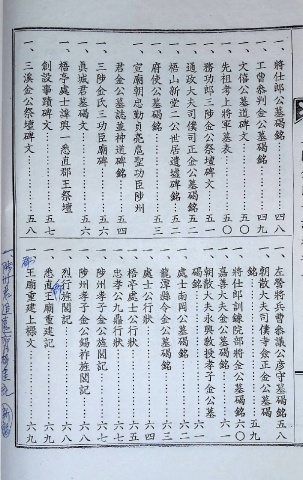 一、將仕郎公墓碣銘………四八
一、工曹參判金公墓碣銘………四九
一、文僖公墓道碑文………五〇
一、先祖考上將軍墓表………五〇
一、務功郎三陟金公祭壇碑文………五一
一、通政大夫司僕司正公墓碣銘………五二
一、梧山新堂二公世居遺墟碑銘………五二
一、府使公墓碣銘………五三
一、宣廟朝忠勳貞亮扈聖功臣陟州
君金公墓誌並神道碑銘………五四
一、三陟金氏三功臣廟碑………五六
一、眞城君墓碣文………五六
一、梧亭處士諱興一悉直郡王祭壇
創設事蹟碑文………五七
一、三溪金公祭壇碑文………五八
一、左營將兵曹參議公彦守墓碣銘五八
一、朝散大夫司僕寺僉正金公墓碣
銘………五九
一、將仕郎訓鍊院部將金公墓碣銘六〇
一、嘉善大夫金公墓碣銘………六一
一、朝散大夫永興敎授孝子金公墓
碣銘………六一
一、處士南岡公墓碣銘………六二
一、龍潭縣令金公墓碣銘………六三
一、處士公行狀………六四
一、梧亭處士公行狀………六五
一、忠孝公九鼎行狀………六七
一、陟州孝子金公旌閭記………六七
一、陟州孝子金公錫祚旌閭記………六八
一、烈行旌閭記………六八
一、悉直王廟重建記………六九
一、王廟重建上樑文………六九